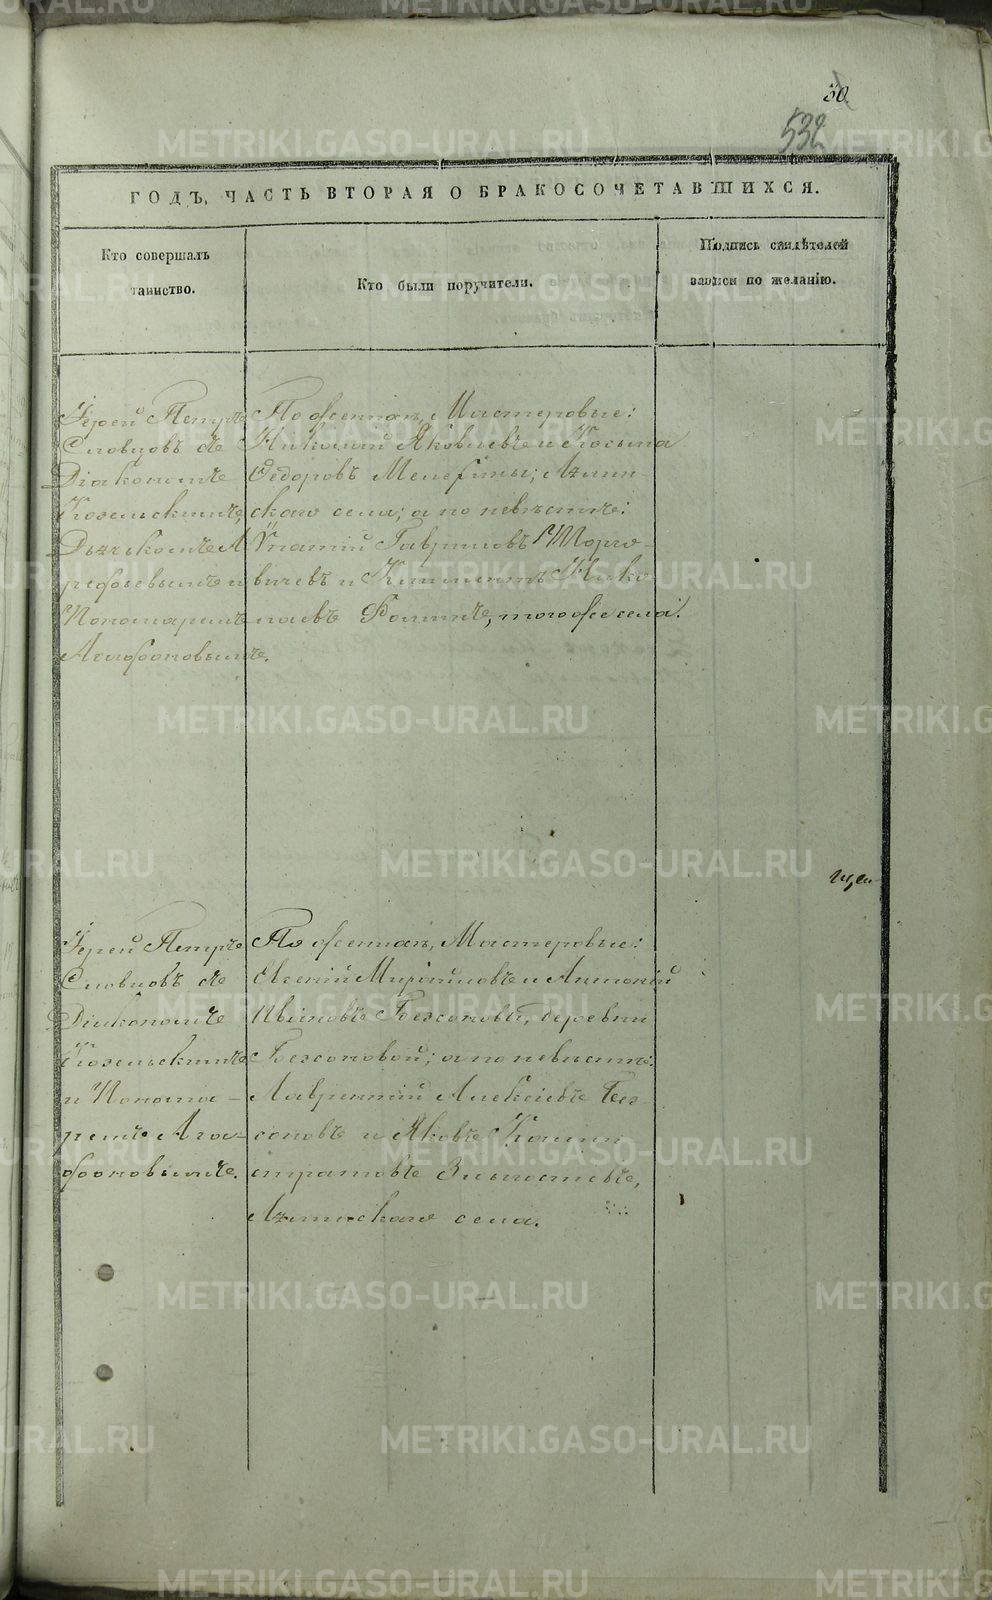 50.
532
ГОДЪ, ЧАСТЬ ВТОРАЯ О БРАКОСОЧЕТАВШИХСЯ.
Кто совершалъ
таинство.
Кто были поручители.
Подпись свидѣтелей
записи по желанію.
Іерей Петръ
Словцовъ съ
Діакономъ
Козельскимъ,
Дьячкомъ А
рефьевымъ и
Пономаремъ
Агафоновымъ.
По женихѣ, Мастеровые:
Николай Яковлевъ и Косьма
Ѳедоровъ Мелехины; Азлин-
скаго села; а по невѣстѣ:
Ипатій Гавриловъ
вичевъ и Климентъ Нико-
лаевъ Фоминъ, того же села.
Іерей Петръ
Словцовъ съ
Діакономъ
Козельскимъ
и Понома-
ремъ Ага-
фоновымъ.
По женихѣ, Мастеровые:
Евсевій Мироновъ и Антоній
Ивановъ Безсоновы, деревни
Безсоновой; а по невѣстѣ:
Лаврентій Алексѣевъ Без-
соновъ и Яковъ Калли-
стратовъ
скаго села.
METRIKI.GASO-URAL.RU